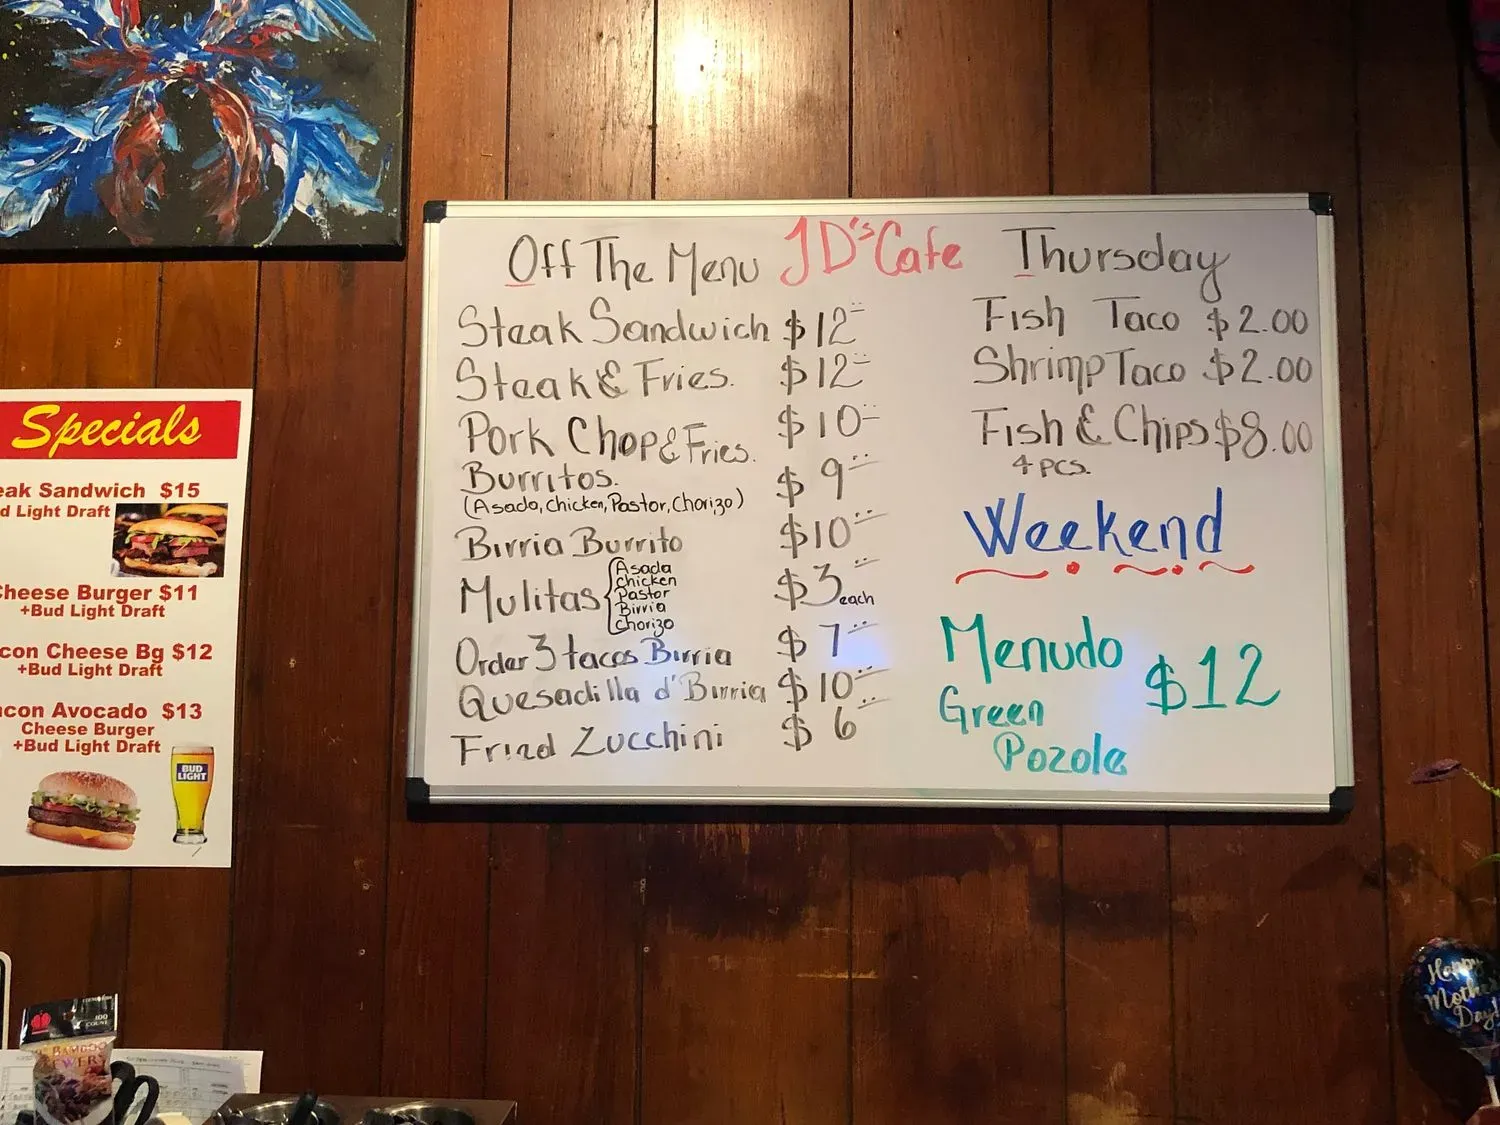 Off The Menu JD's Cafe Thursday
Steak Sandwich $12
Steak & Fries. $12
Pork Chop & Fries. $10
Burritos. $9
(Asada, Chicken, Pastor, Chorizo)
Birria Burrito $10
Mulitas $3 each
Asada
Chicken
Pastor
Birria
Chorizo
Order 3 tacos Birria $7
Quesadilla d' Birria $10
Fried Zucchini $6
Fish Taco $2.00
Shrimp Taco $2.00
Fish & Chips $8.00
4 pcs.
Weekend
Menudo $12
Green
Pozole
Specials
eak Sandwich $15
d Light Draft
Cheese Burger $11
+Bud Light Draft
con Cheese Bg $12
+Bud Light Draft
acon Avocado $13
Cheese Burger
+Bud Light Draft
BUD
LIGHT
100
COUNT
BAMBOO
Happy
Mother
Day!